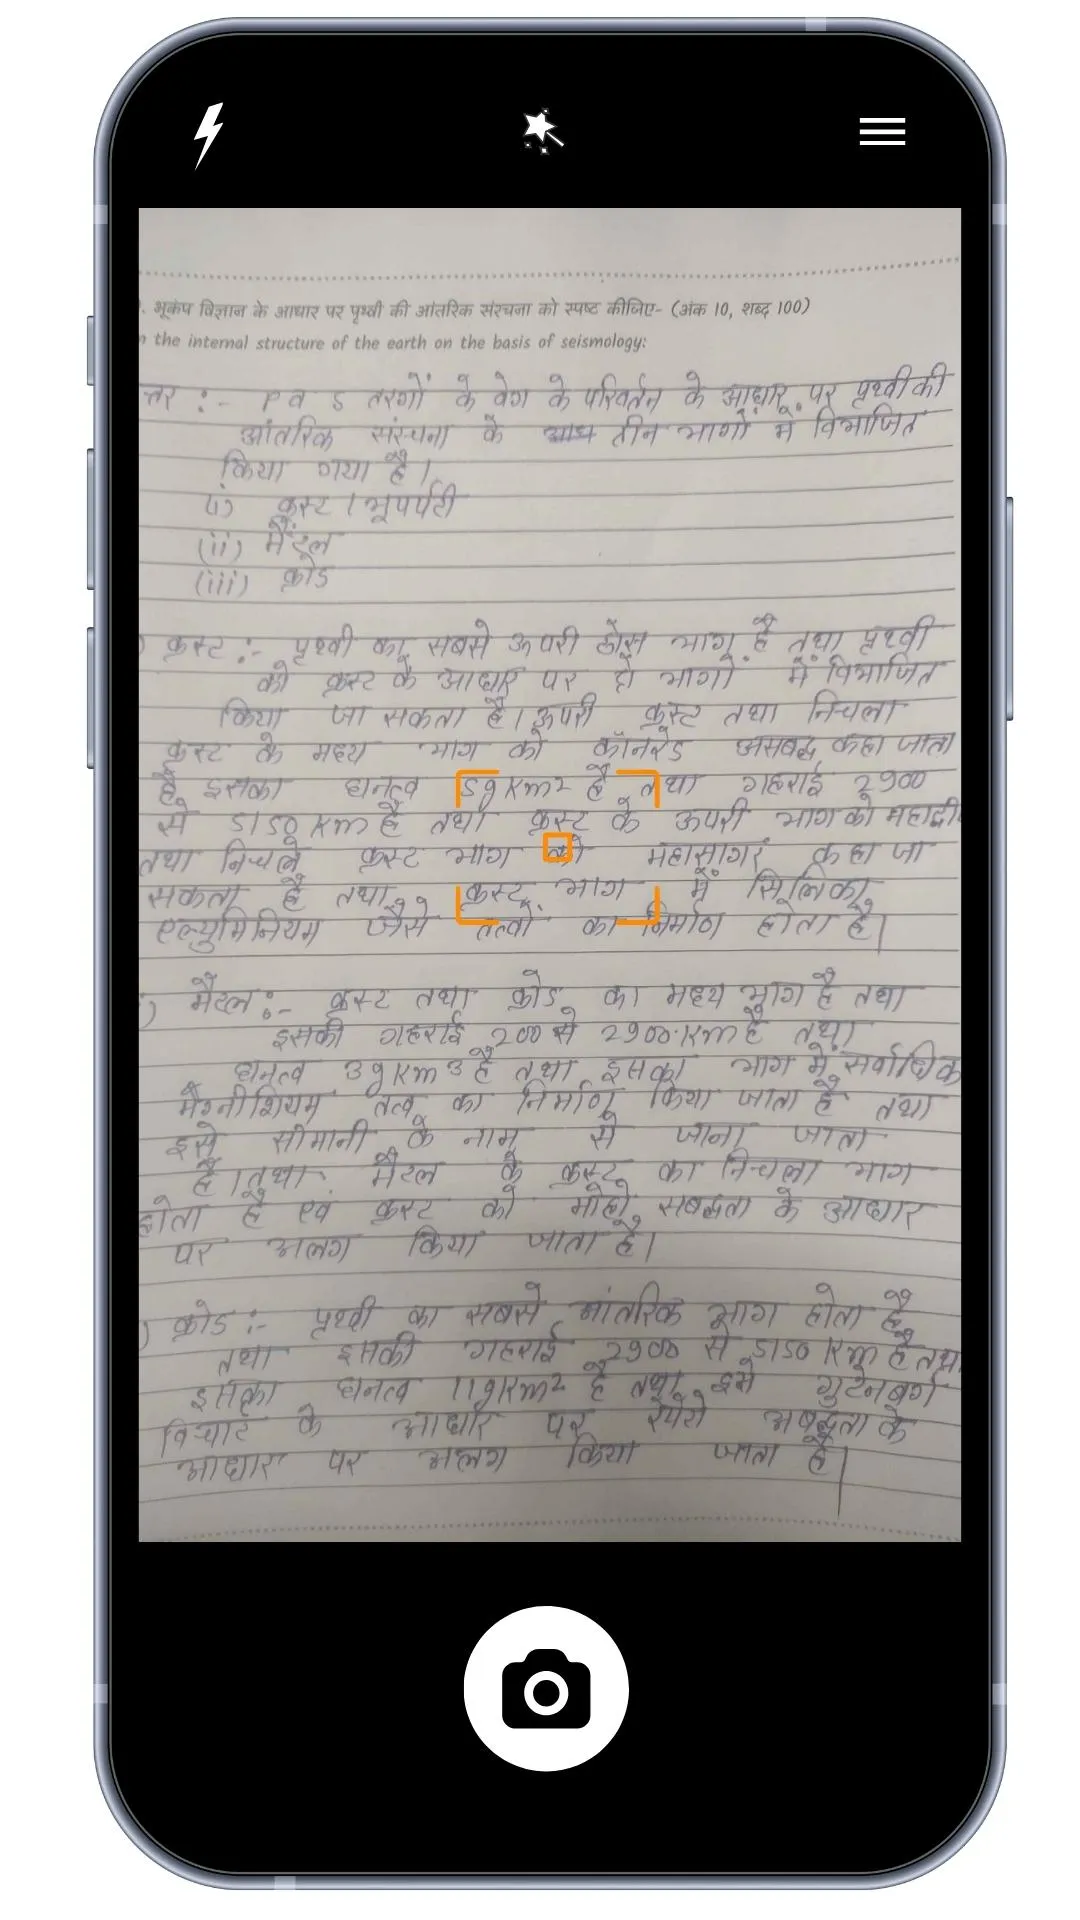 . भूकंप विज्ञान के आधार पर पृथ्वी की आंतरिक संरचना को स्पष्ट कीजिए- (अंक 10, शब्द 100)
the internal structure of the earth on the basis of seismology:
त्तर :- P व S तरगों के वेग के परिवर्तन के आधार पर पृथ्वी की
आंतरिक संरचना के तीन भागों में विभाजित
किया गया है।
(i) क्रस्ट / भूपर्पटी
(ii) मैंटल
(iii) क्रोड
) क्रस्ट :- पृथ्वी का सबसे ऊपरी ठोस भाग है तथा पृथ्वी
को क्रस्ट के आधार पर दो भागों में विभाजित
किया जा सकता है। ऊपरी क्रस्ट तथा निचला
क्रस्ट के मध्य भाग को कॉनरेड असबद्ध कहा जाता
है इसका घनत्व 5g Km2 है तथा गहराई 2900
से 5150 Km है तथा क्रस्ट के ऊपरी भाग को महाद्वी
तथा निचले क्रस्ट भाग को महासागर कहा जा
सकता है तथा क्रस्ट भाग में सिलिका
एल्युमिनियम जैसे तत्वों का निर्माण होता है।
) मैटल :- क्रस्ट तथा क्रोड का मध्य भाग है तथा
इसकी गहराई 200 से 2900 Km है तथा
घनत्व 3g Km3 है तथा इसका भाग में सर्वाधिक
मैग्नीशियम तत्व का निर्माण किया जाता है तथा
इसे सीमानी के नाम से जाना जाता
है। तथा मैटल के क्रस्ट का निचला भाग
होता है एवं क्रस्ट को मोहो सबद्धता के आधार
पर अलग किया जाता है।
) क्रोड :- पृथ्वी का सबसे आंतरिक भाग होता है
तथा इसकी गहराई 2900 से 5150 Km है तथा
इसका घनत्व 11g Km2 है तथा इसे गुटेनबर्ग
विचार के आधार पर रेपेटी अबद्धता के
आधार पर अलग किया जाता है।